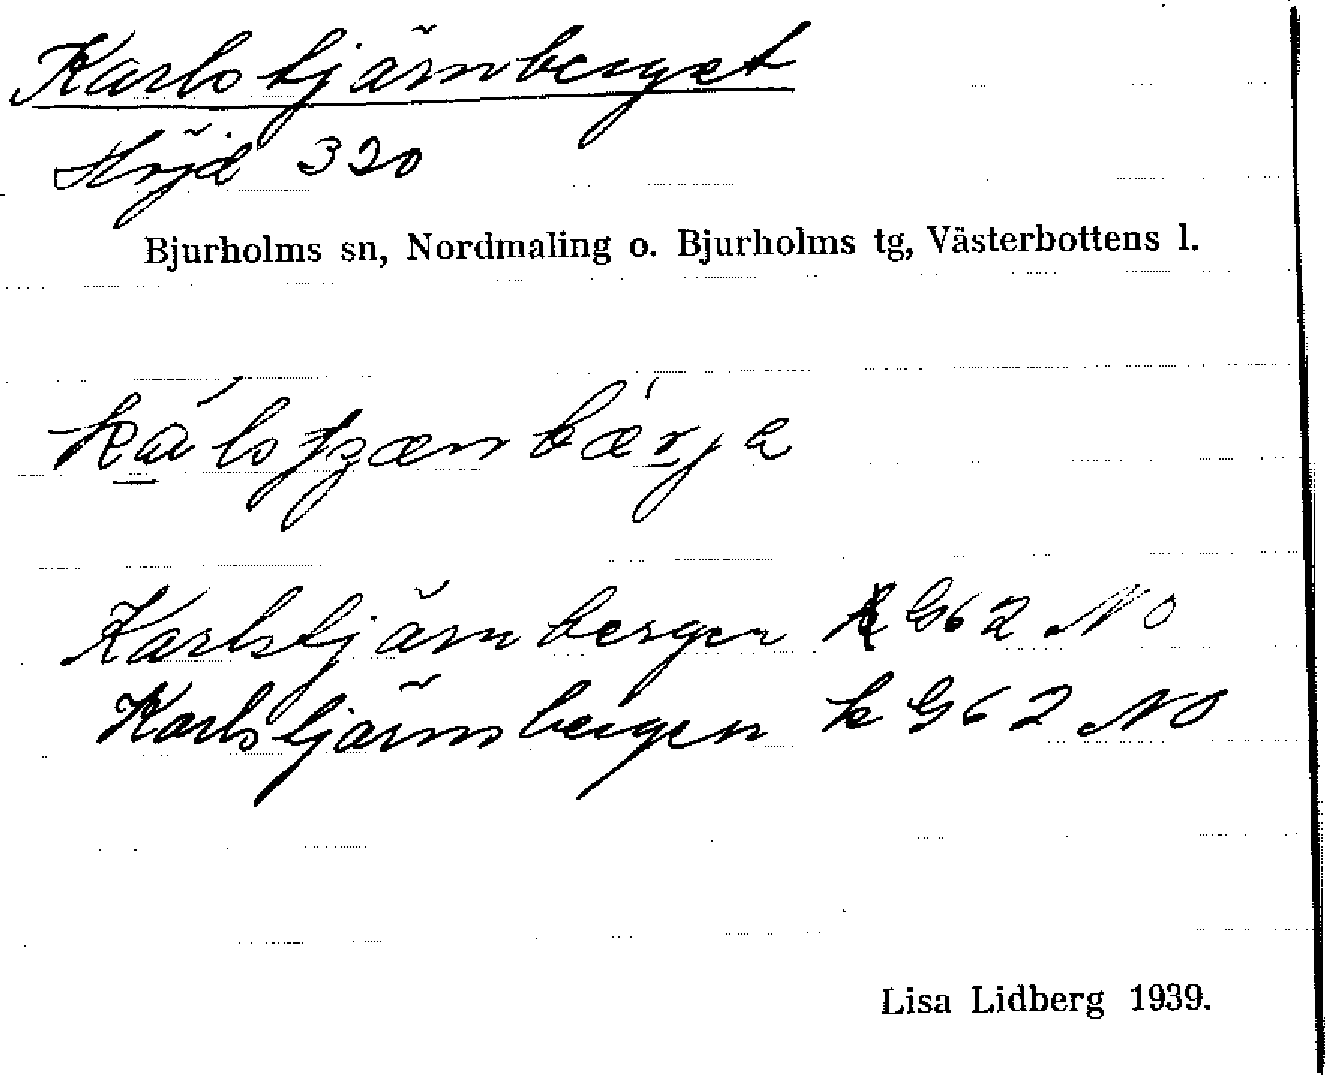 Karlstjärnberget
Höjd 320
Bjurholms sn, Nordmaling o. Bjurholms tg, Västerbottens l.
Karlstjärnbergen k G62 NO
Karlstjärnbergen k G62 NO
Lisa Lidberg 1939.